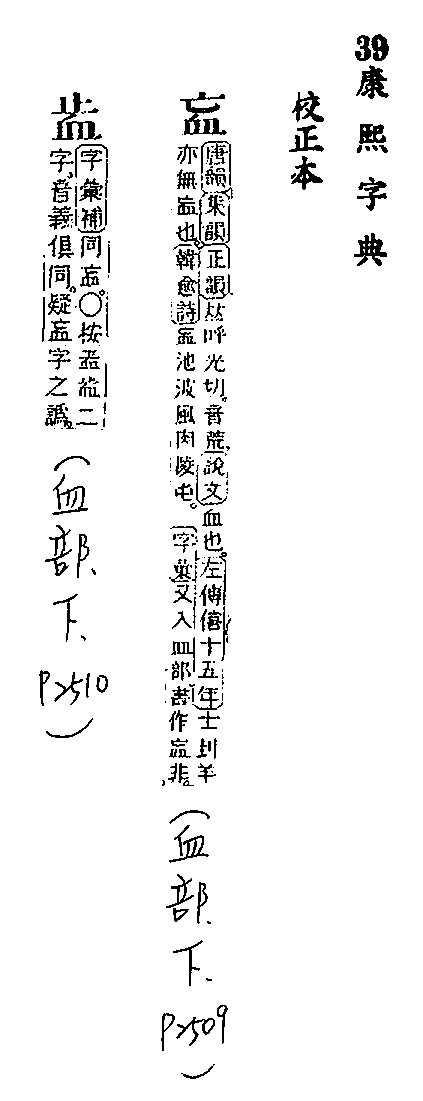 39康熙字典
校正本
衁
唐韻集韻正韻𠀤呼光切。音荒。說文血也。左傳僖十五年士刲羊
亦無衁也。韓愈詩衁池波風肉陵屯。字彙又入皿部書作 非。
(血部、下、P2509)
字彙補同衁。○按 二
字，音義俱同。疑衁字之譌。
(血部、下、P2510)